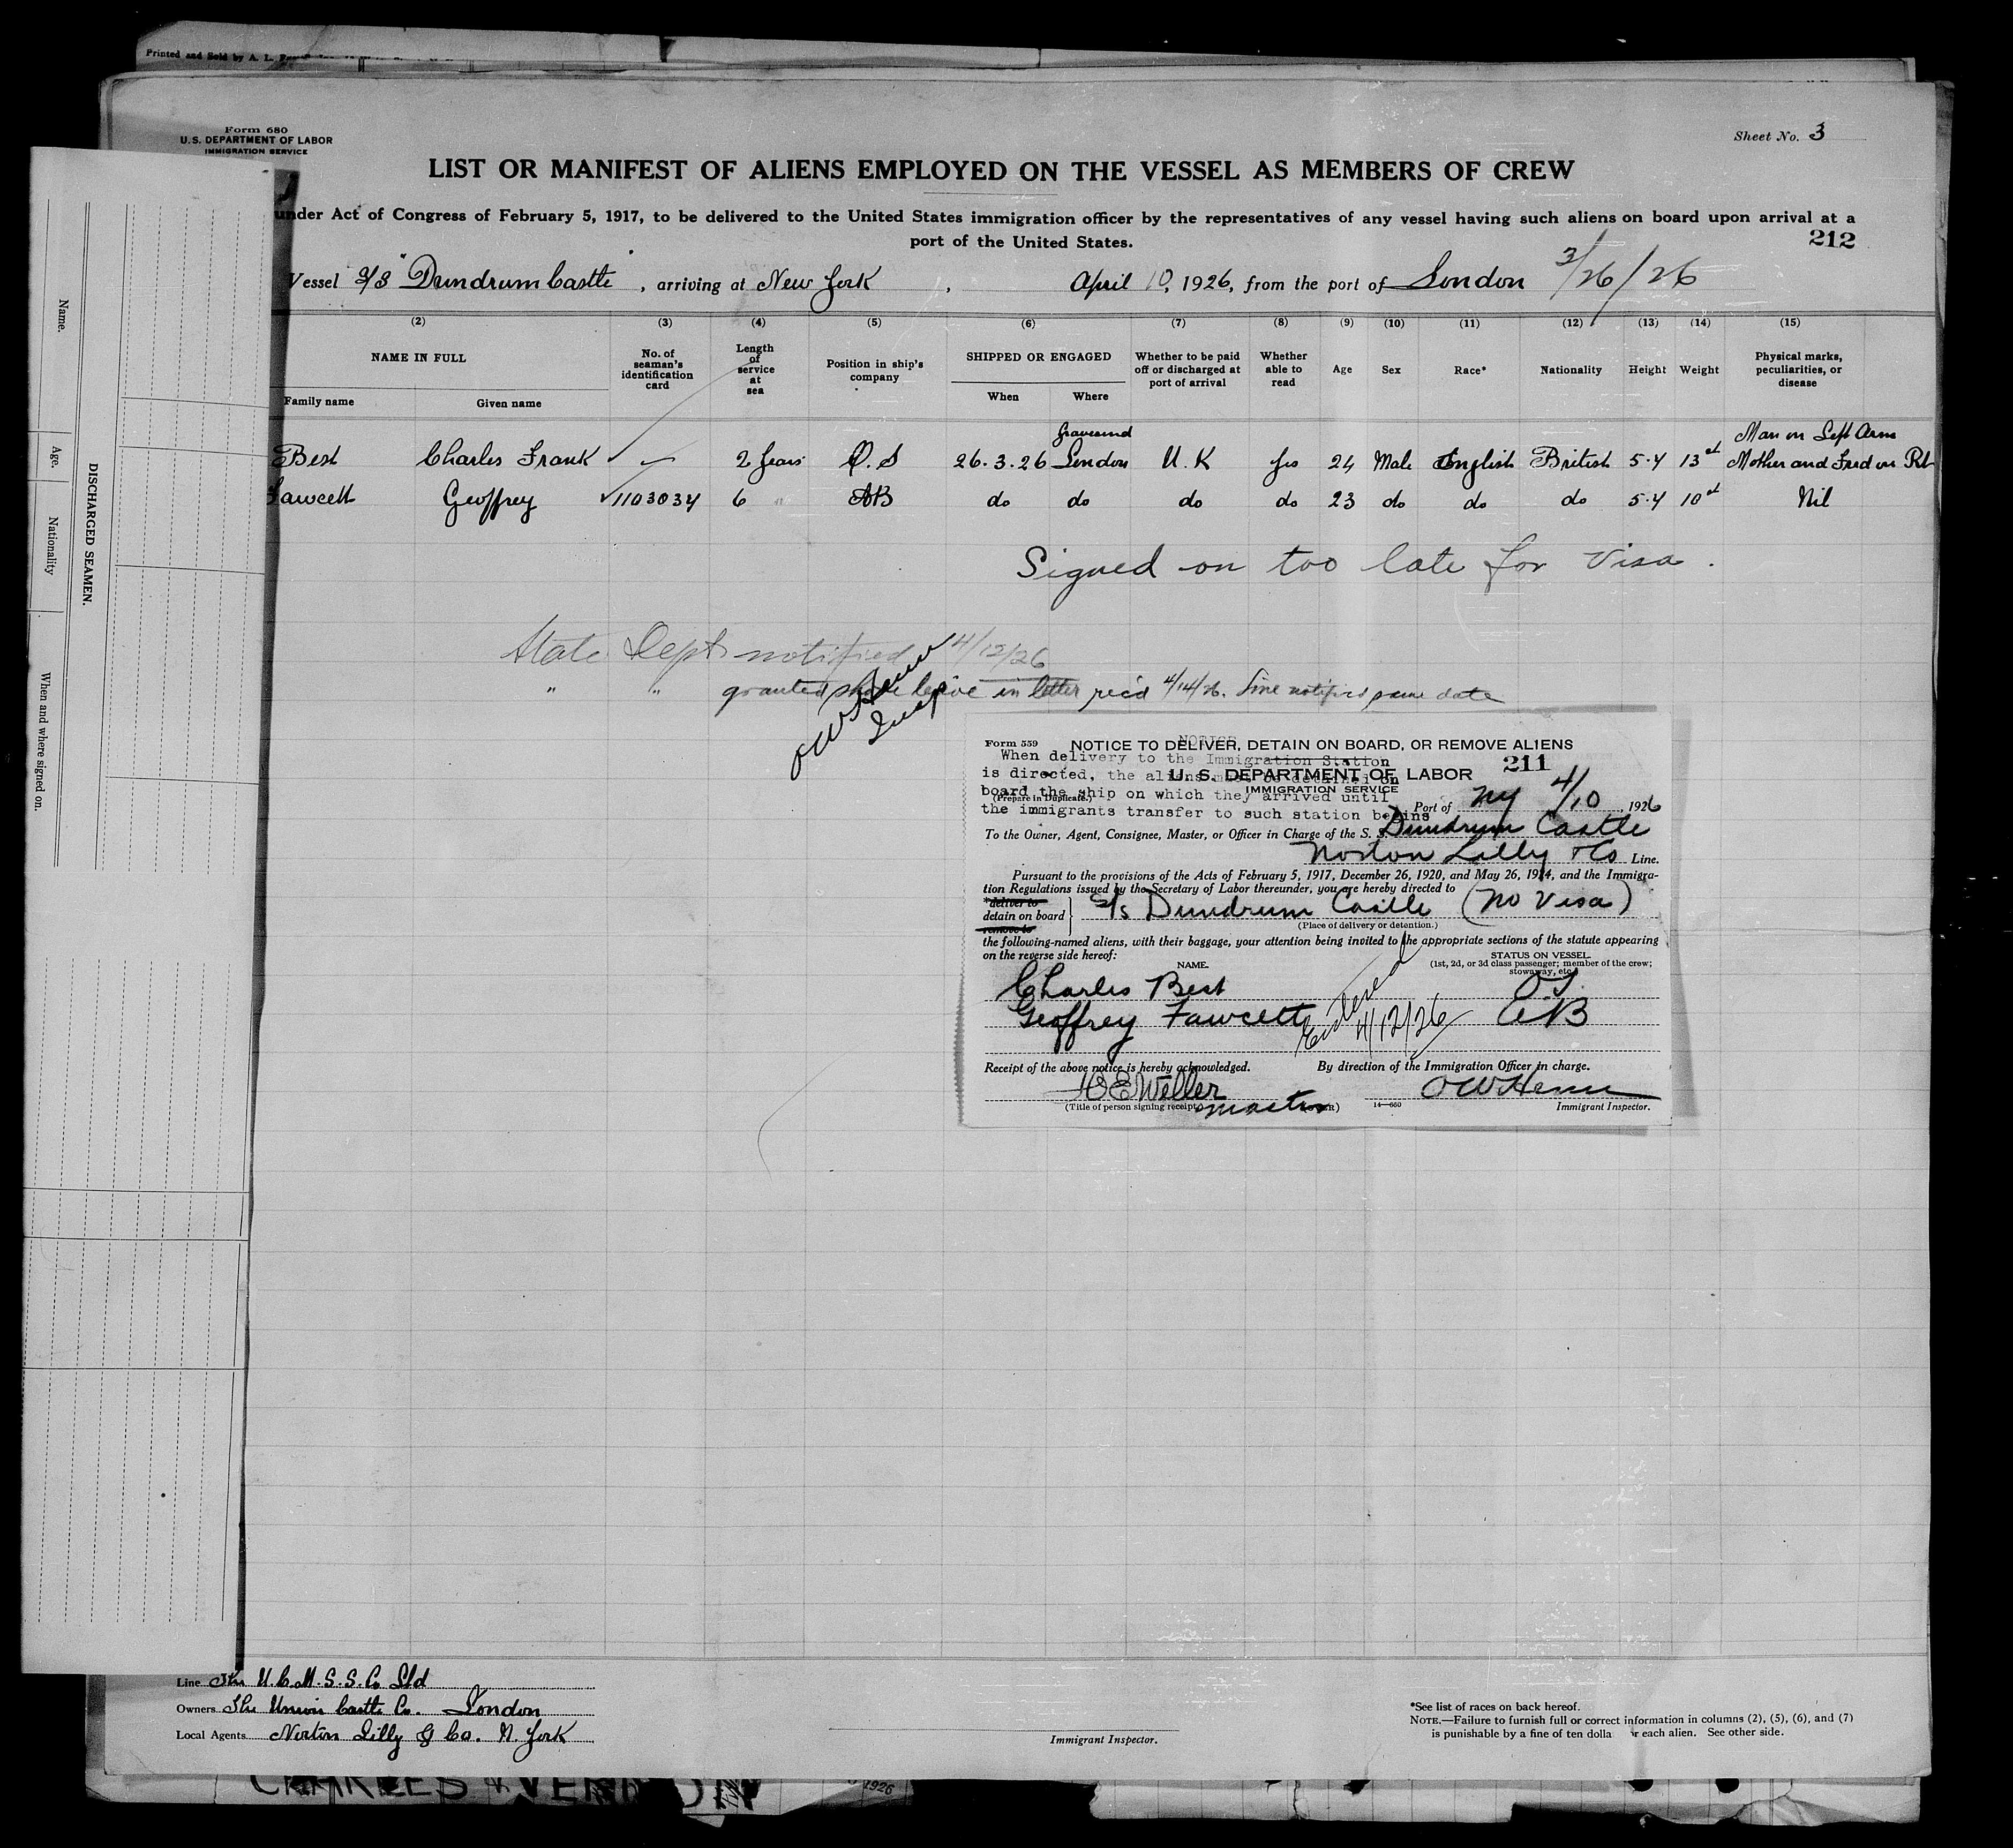 Printed and Sold by A. L.
Form 680
U.S. DEPARTMENT OF LABOR
IMMIGRATION SERVICE
Sheet No. 3
LIST OR MANIFEST OF ALIENS EMPLOYED ON THE VESSEL AS MEMBERS OF CREW
under Act of Congress of February 5, 1917, to be delivered to the United States immigration officer by the representatives of any vessel having such aliens on board upon arrival at a
port of the United States.
212
Vessel S/S "Dundrum Castle", arriving at New York, April 10, 1926, from the port of London 3/26/26
(2) (3) (4) (5) (6) (7) (8) (9) (10) (11) (12) (13) (14) (15)
NAME IN FULL
Family name Given name
No. of seaman's identification card
Length of service at sea
Position in ship's company
SHIPPED OR ENGAGED
When Where
Whether to be paid off or discharged at port of arrival
Whether able to read
Age
Sex
Race*
Nationality
Height
Weight
Physical marks, peculiarities, or disease
Gravesend Man on Left Arm
Best Charles Frank 2 years O.S 26.3.26 London U.K Yes 24 Male English British 5.4 13st Mother and Fred on Rt
Fawcett Geoffrey 1103034 6 AB do do do do 23 do do do 5.4 10st Nil
Signed on too late for Visa.
State Dept notified 4/12/26
" " granted shore leave in letter rec'd 4/14/26. Line notified same date
Insp
Form 559 NOTICE TO DELIVER, DETAIN ON BOARD, OR REMOVE ALIENS
NOTICE
When delivery to the Immigration Station
is directed, the aliens must be detained on
board the ship on which they arrived until
the immigrants transfer to such station begins
211
U. S. DEPARTMENT OF LABOR
IMMIGRATION SERVICE
(Prepare in Duplicate.)
Port of NY 4/10, 1926
To the Owner, Agent, Consignee, Master, or Officer in Charge of the S. S. Dundrum Castle
Norton Lilly & Co Line.
Pursuant to the provisions of the Acts of February 5, 1917, December 26, 1920, and May 26, 1924, and the Immigra-
tion Regulations issued by the Secretary of Labor thereunder, you are hereby directed to
*deliver to
detain on board S/S Dundrum Castle (No Visa)
remove to
(Place of delivery or detention.)
the following-named aliens, with their baggage, your attention being invited to the appropriate sections of the statute appearing
on the reverse side hereof:
NAME.
STATUS ON VESSEL
(1st, 2d, or 3d class passenger; member of the crew;
stowaway, etc.)
Charles Best OS.
Geoffrey Fawcett AB
Entered
4/12/26
Receipt of the above notice is hereby acknowledged. By direction of the Immigration Officer in charge.
Weller
Master
(Title of person signing receipt)
14—660
Immigrant Inspector.
DISCHARGED SEAMEN.
Name.
Age.
Nationality
When and where signed on.
Line The U.C.M.S.S. Co Ltd
Owners The Union Castle Co. London
Local Agents Norton Lilly & Co. N. York
Immigrant Inspector.
*See list of races on back hereof.
NOTE.—Failure to furnish full or correct information in columns (2), (5), (6), and (7)
is punishable by a fine of ten dolla or each alien. See other side.
CHARLES
1926